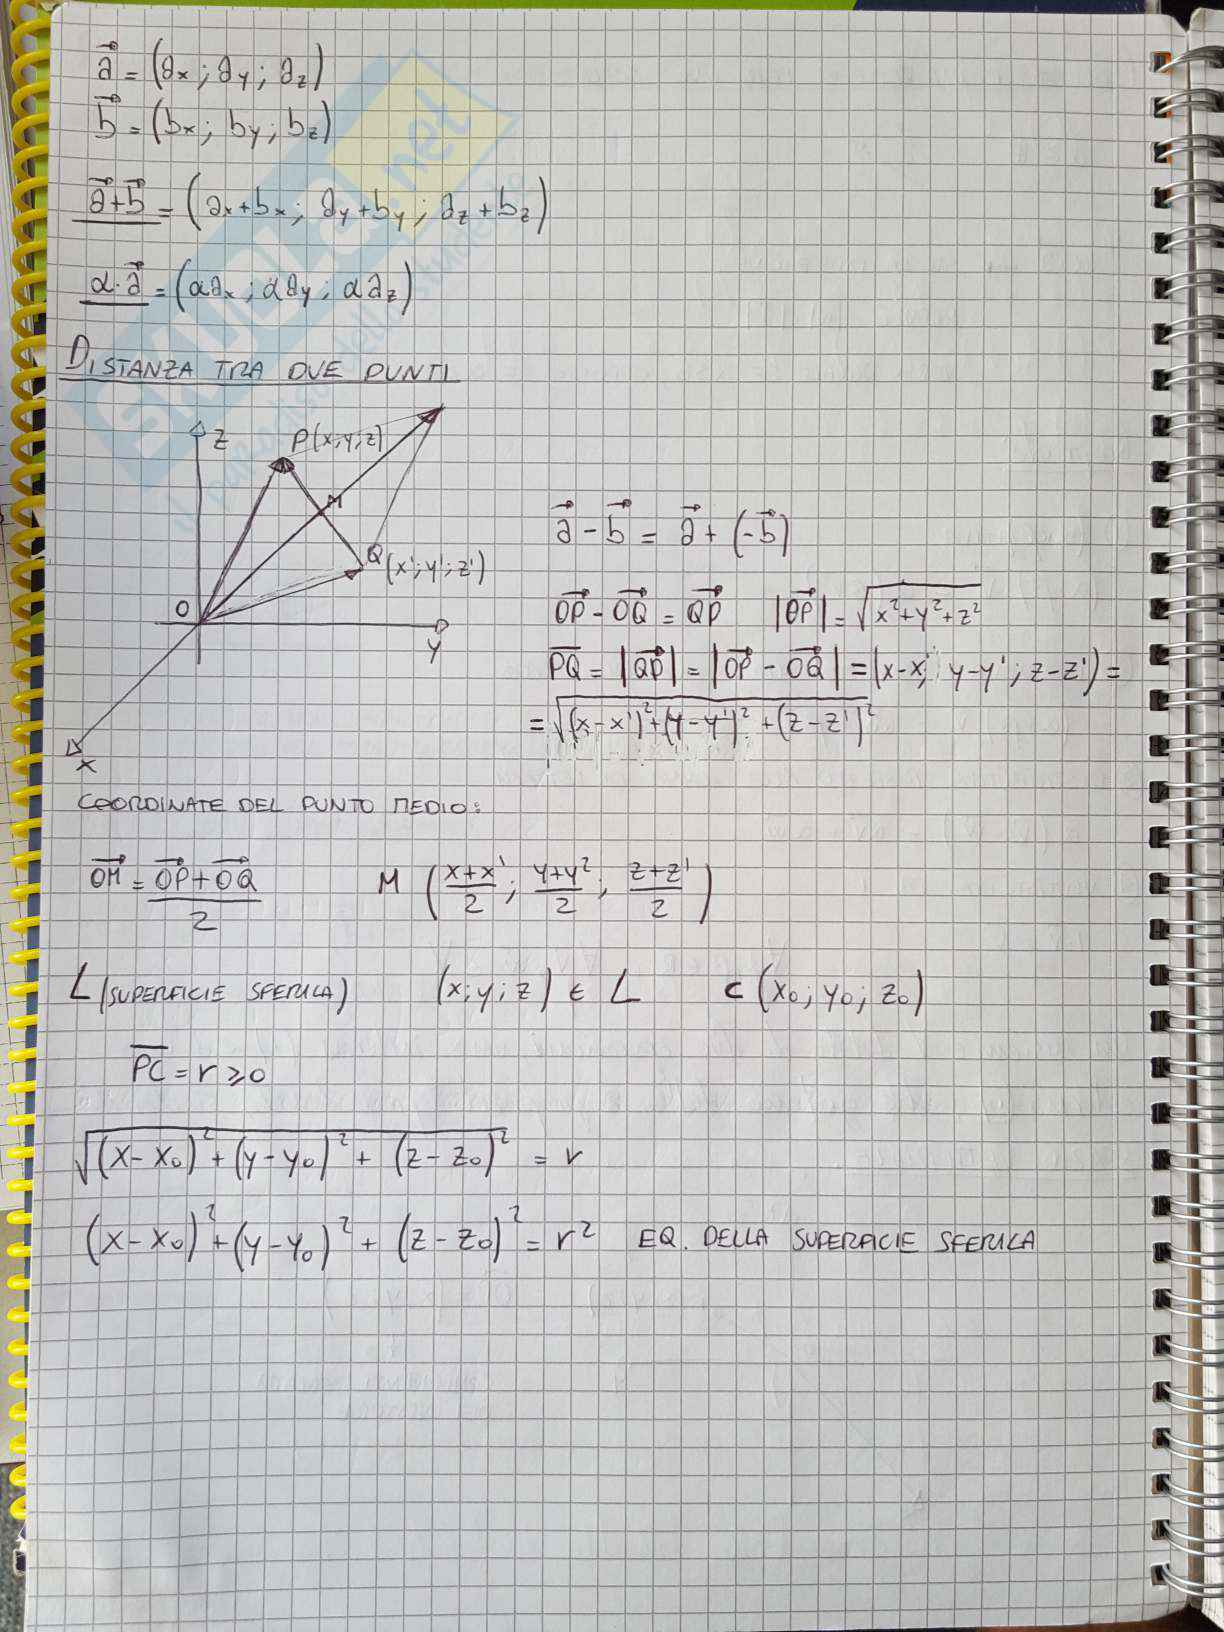 a⃗ = (ax ; ay ; az)
b⃗ = (bx ; by ; bz)
a⃗+b⃗ = (ax+bx ; ay+by ; az+bz)
α·a⃗ = (αax ; αay ; αaz)
DISTANZA TRA DUE PUNTI
z
P(x;y;z)
M
Q(x';y';z')
O
y
x
a⃗ - b⃗ = a⃗ + (-b⃗)
OP⃗ - OQ⃗ = QP⃗ |OP⃗| = √(x²+y²+z²)
P̅Q̅ = |QP⃗| = |OP⃗ - OQ⃗| = (x-x' ; y-y' ; z-z') =
= √((x-x')²+(y-y')²+(z-z')²)
COORDINATE DEL PUNTO MEDIO:
OM⃗ = (OP⃗+OQ⃗)/2 M ((x+x')/2 ; (y+y²)/2 ; (z+z')/2)
L (SUPERFICIE SFERICA) (x;y;z) ∈ L C (x₀ ; y₀ ; z₀)
P̅C̅ = r ⩾ 0
√((x-x₀)²+(y-y₀)²+(z-z₀)²) = r
(x-x₀)²+(y-y₀)²+(z-z₀)² = r² EQ. DELLA SUPERFICIE SFERICA
SKUOLA.net
il paradiso dello studente